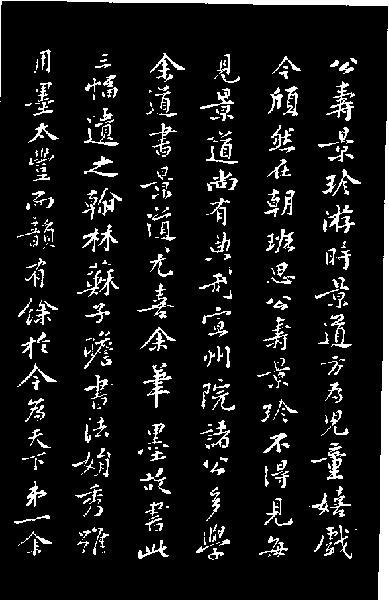 公壽景珍游時景道方爲兒童嬉戲
今頎然在朝班思公壽景珍不得見每
見景道尚有典刑宣州院諸公多學
余道書景道尤喜余筆墨故書此
三幅遺之翰林蘇子瞻書法娟秀雖
用墨太豐而韻有餘於今爲天下第一余